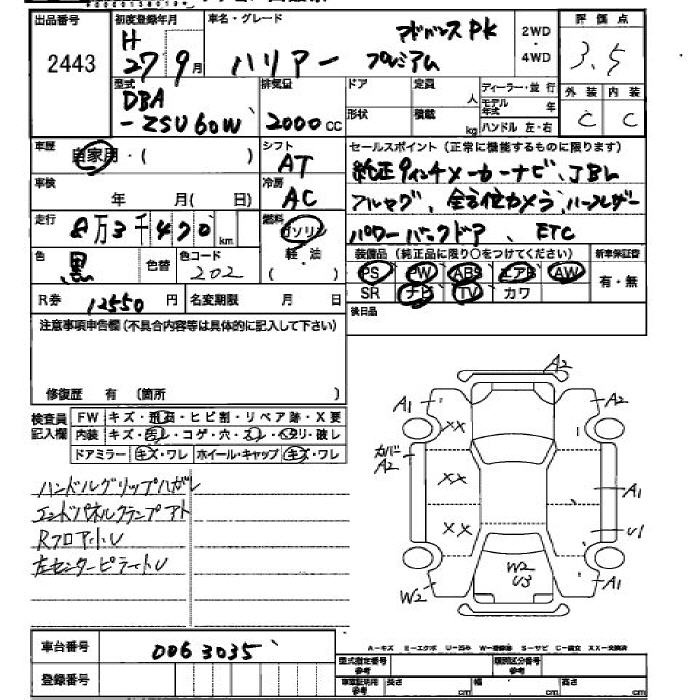 出品番号 初度登録年月 車名・グレード 評価点
2443 H 27 9月 ハリアー アドバンスPK プレミアム 2WD・4WD 3.5
型式 排気量 ドア 定員 人 ディーラー・並行 外装 内装
DBA-ZSU60W 2000cc 形状 積載 kg モデル年式 年 ハンドル 左・右 C C
車歴 自家用・( ) シフト AT セールスポイント(正常に機能するものに限ります)
車検 年 月( 日) 冷房 AC 純正9インチメーカーナビ、JBL
アルカンターラ、全方位カメラ、ハーフレザー
走行 8万3千470km 燃料 ガソリン 軽・油 ( ) パワーバックドア、ETC
色 黒 色替 色コード 202 装備品(純正品に限り○をつけてください) 新車保証書
PS PW ABS エアB AW 有・無
R券 12550円 名変期限 月 日 SR ナビ TV カワ
注意事項申告欄(不具合内容等は具体的に記入して下さい) 後日品
修復歴 有 (箇所 )
検査員記入欄 FW キズ・飛石・ヒビ割・リペア跡・X要
内装 キズ・汚レ・コゲ・穴・スレ・ヘタリ・破レ
ドアミラー キズ・ワレ ホイール・キャップ キズ・ワレ
ハンドルグリップハガレ
エンドパネルクランプアト
RフロアイートU
左センターピラートU
A2
A1 A2
XX
カバーA2 XX A1
XX U1
W2 U3
W2 A1
A-キズ E-エクボ U-凹み W-補修跡 S-サビ C-腐食 XX-交換済
車台番号 0063035
登録番号 型式指定番号 参考 類別区分番号 参考
車庫証明用 参考 長さ cm 幅 cm 高さ cm